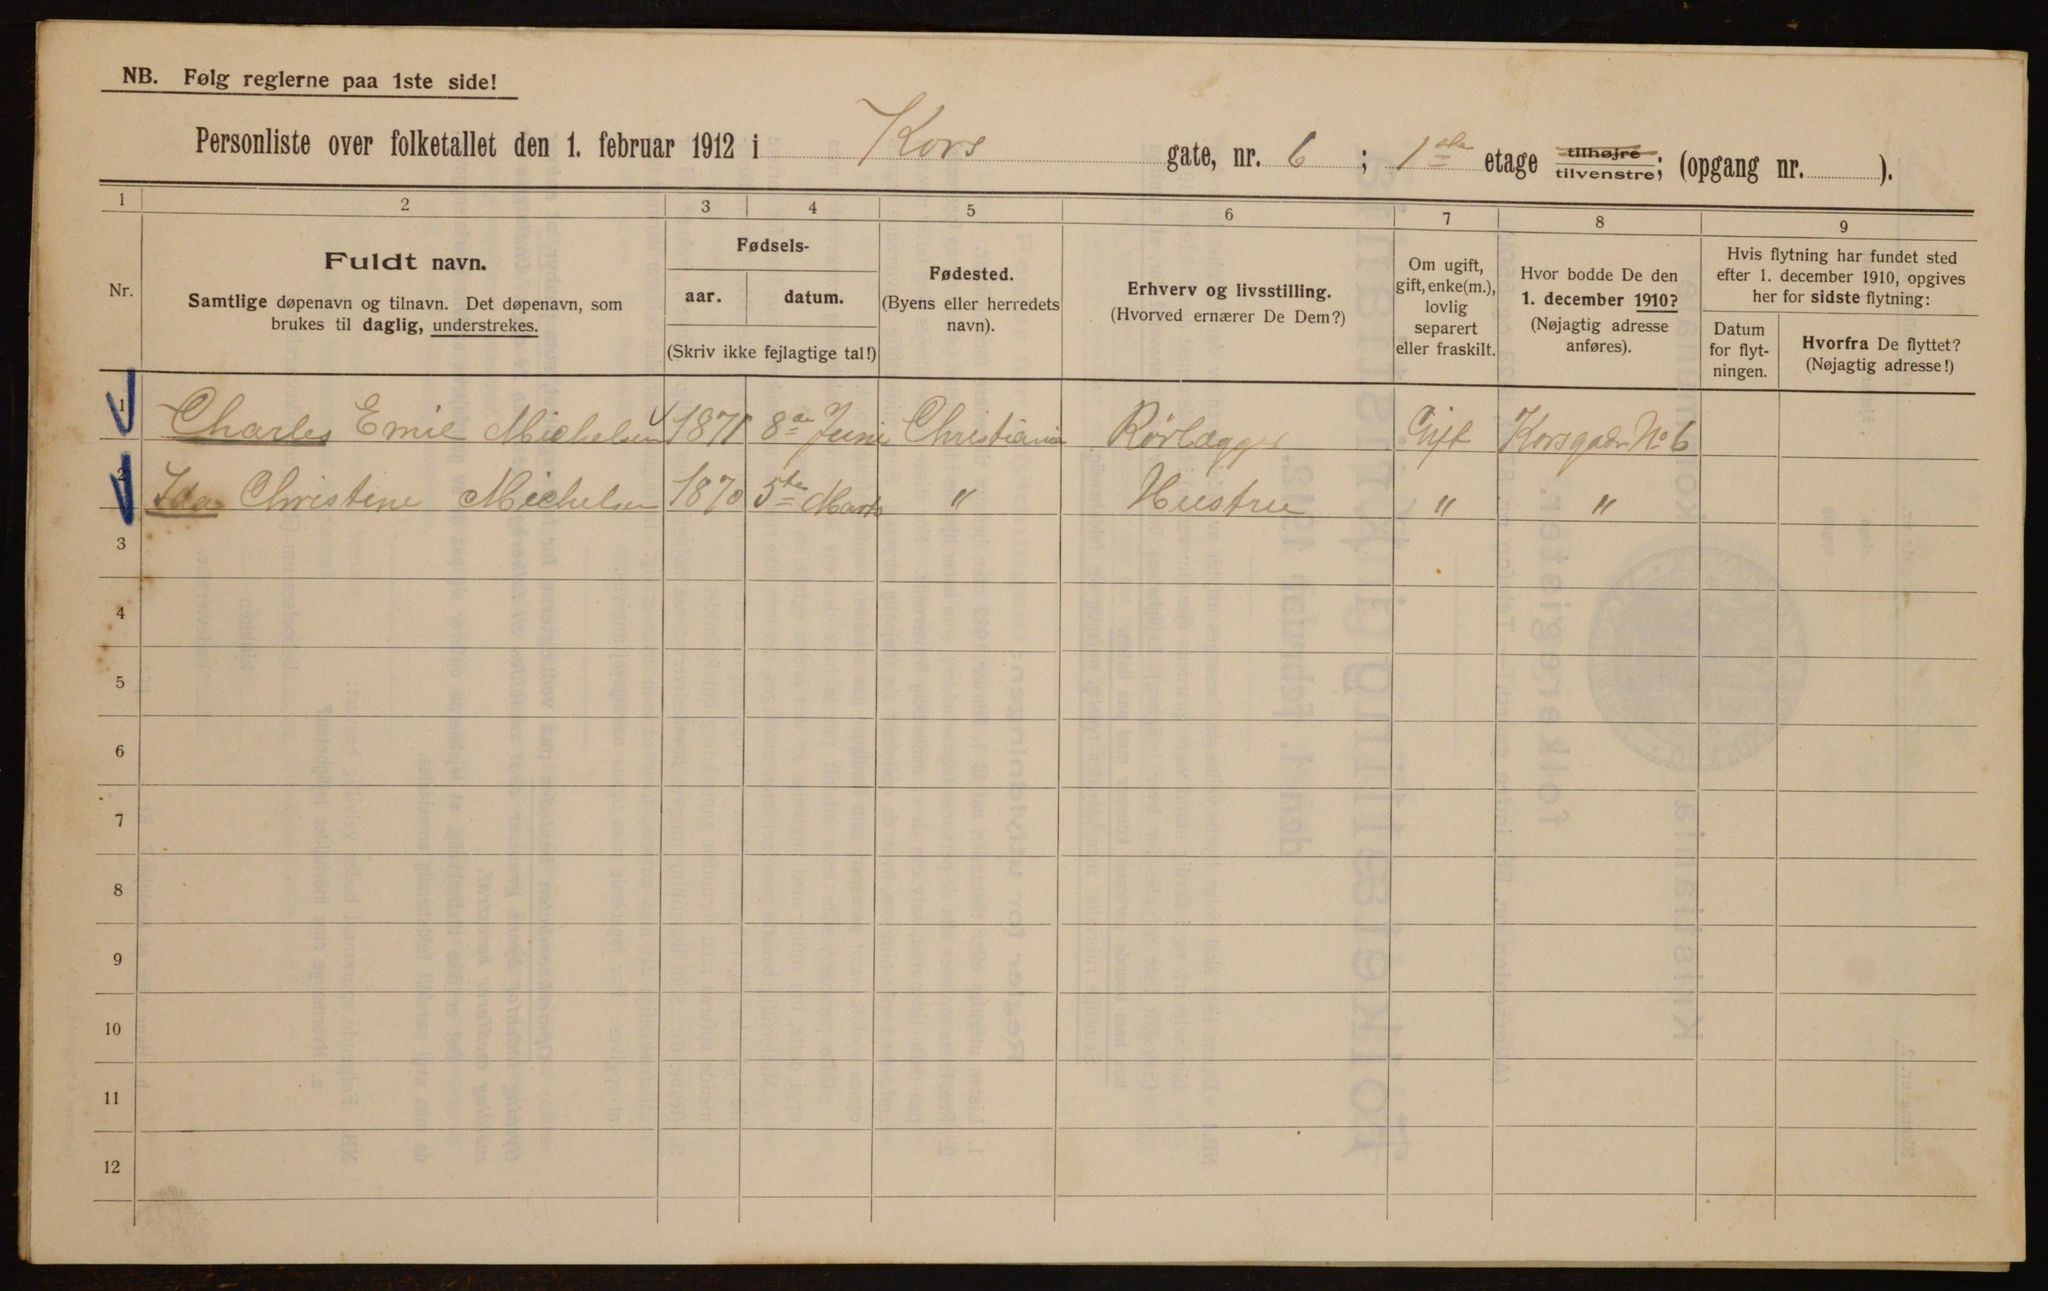 NB. Følg reglerne paa 1ste side!
Personliste over folketallet den 1. februar 1912 i Kors gate, nr. 6 ; 1ste etage tilhøjre tilvenstre; (opgang nr. ).
1 2 3 4 5 6 7 8 9
Nr.
Fuldt navn.
Samtlige døpenavn og tilnavn. Det døpenavn, som
brukes til daglig, understrekes.
Fødsels-
aar. datum.
(Skriv ikke fejlagtige tal!)
Fødested.
(Byens eller herredets
navn).
Erhverv og livsstilling.
(Hvorved ernærer De Dem?)
Om ugift,
gift, enke(m.),
lovlig
separert
eller fraskilt.
Hvor bodde De den
1. december 1910?
(Nøjagtig adresse
anføres).
Hvis flytning har fundet sted
efter 1. december 1910, opgives
her for sidste flytning:
Datum
for flyt-
ningen.
Hvorfra De flyttet?
(Nøjagtig adresse!)
1 Charles Emil Michelsen 1871 8de Juni Christiania Rørlægger Gift Korsgadn No 6
2 Ida Christine Michelsen 1870 5te Marts " Hustru " "
3
4
5
6
7
8
9
10
11
12